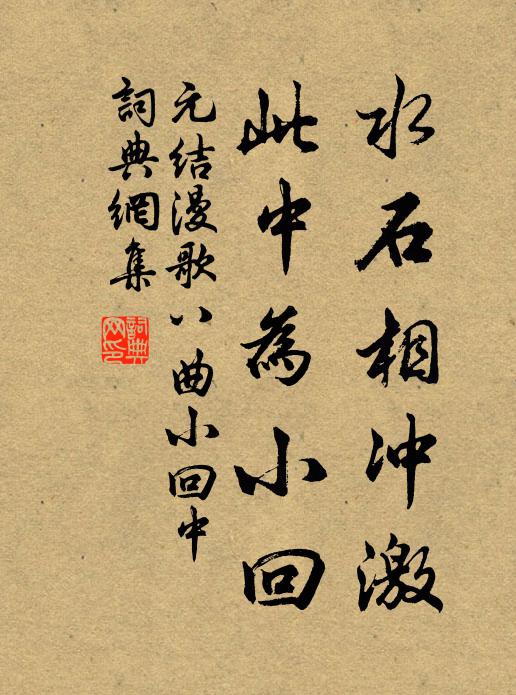 水石相冲激
此中為小回
元结漫歌八曲小回中
詞典網集
詞典網印